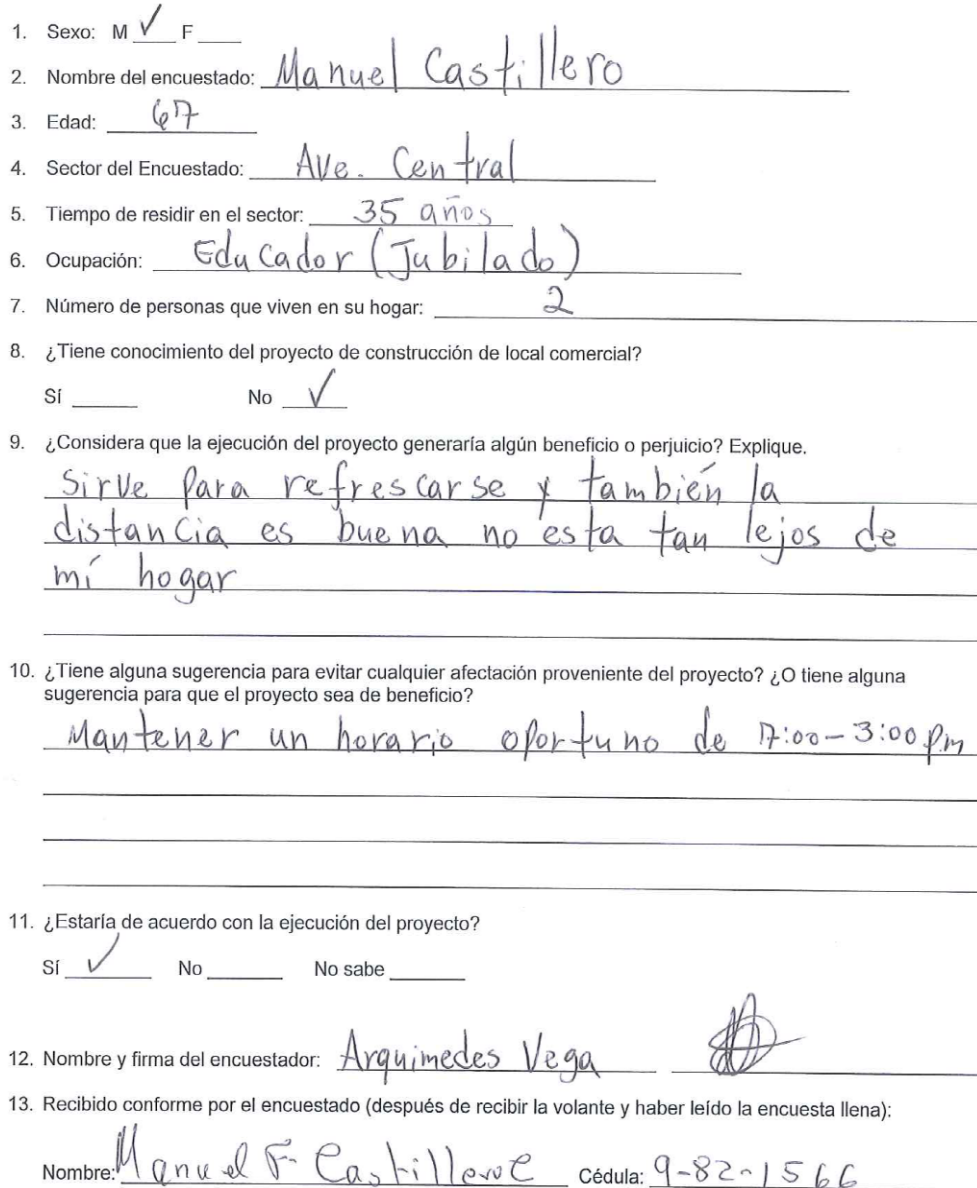 1. Sexo: M ✓ F ____
2. Nombre del encuestado: Manuel Castillero
3. Edad: 67
4. Sector del Encuestado: Ave. Central
5. Tiempo de residir en el sector: 35 años
6. Ocupación: Educador (Jubilado)
7. Número de personas que viven en su hogar: 2
8. ¿Tiene conocimiento del proyecto de construcción de local comercial?
Sí ____ No ✓
9. ¿Considera que la ejecución del proyecto generaría algún beneficio o perjuicio? Explique.
Sirve para refrescarse y también la
distancia es buena no esta tan lejos de
mí hogar
10. ¿Tiene alguna sugerencia para evitar cualquier afectación proveniente del proyecto? ¿O tiene alguna
sugerencia para que el proyecto sea de beneficio?
Mantener un horario oportuno de 7:00 - 3:00 pm
11. ¿Estaría de acuerdo con la ejecución del proyecto?
Sí ✓ No ____ No sabe ____
12. Nombre y firma del encuestador: Arquimedes Vega
13. Recibido conforme por el encuestado (después de recibir la volante y haber leído la encuesta llena):
Nombre: Manuel F. Castillero C Cédula: 9-82-1566